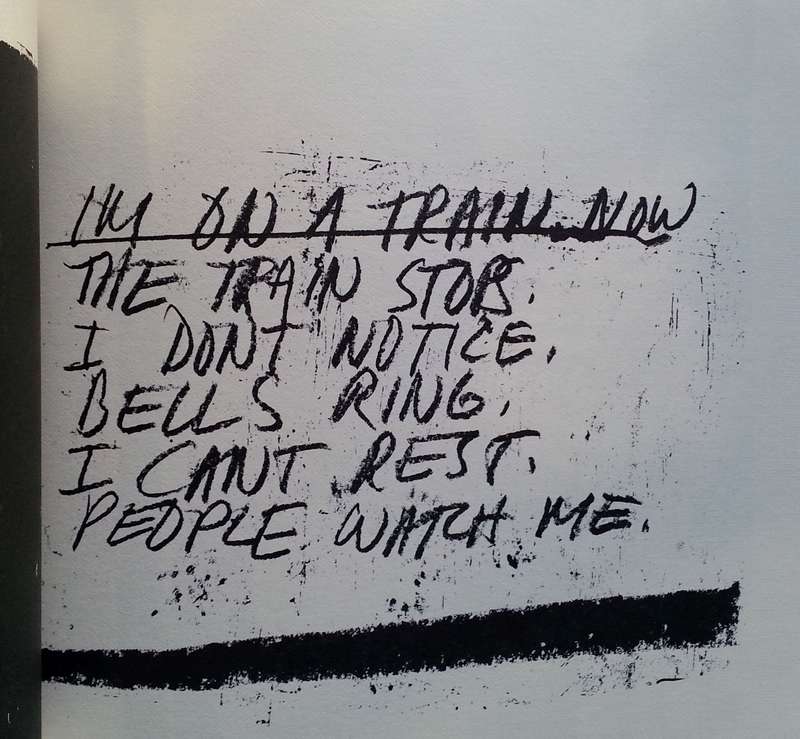 I'M ON A TRAIN NOW
THE TRAIN STOPS.
I DONT NOTICE.
BELLS RING.
I CANT REST.
PEOPLE WATCH ME.